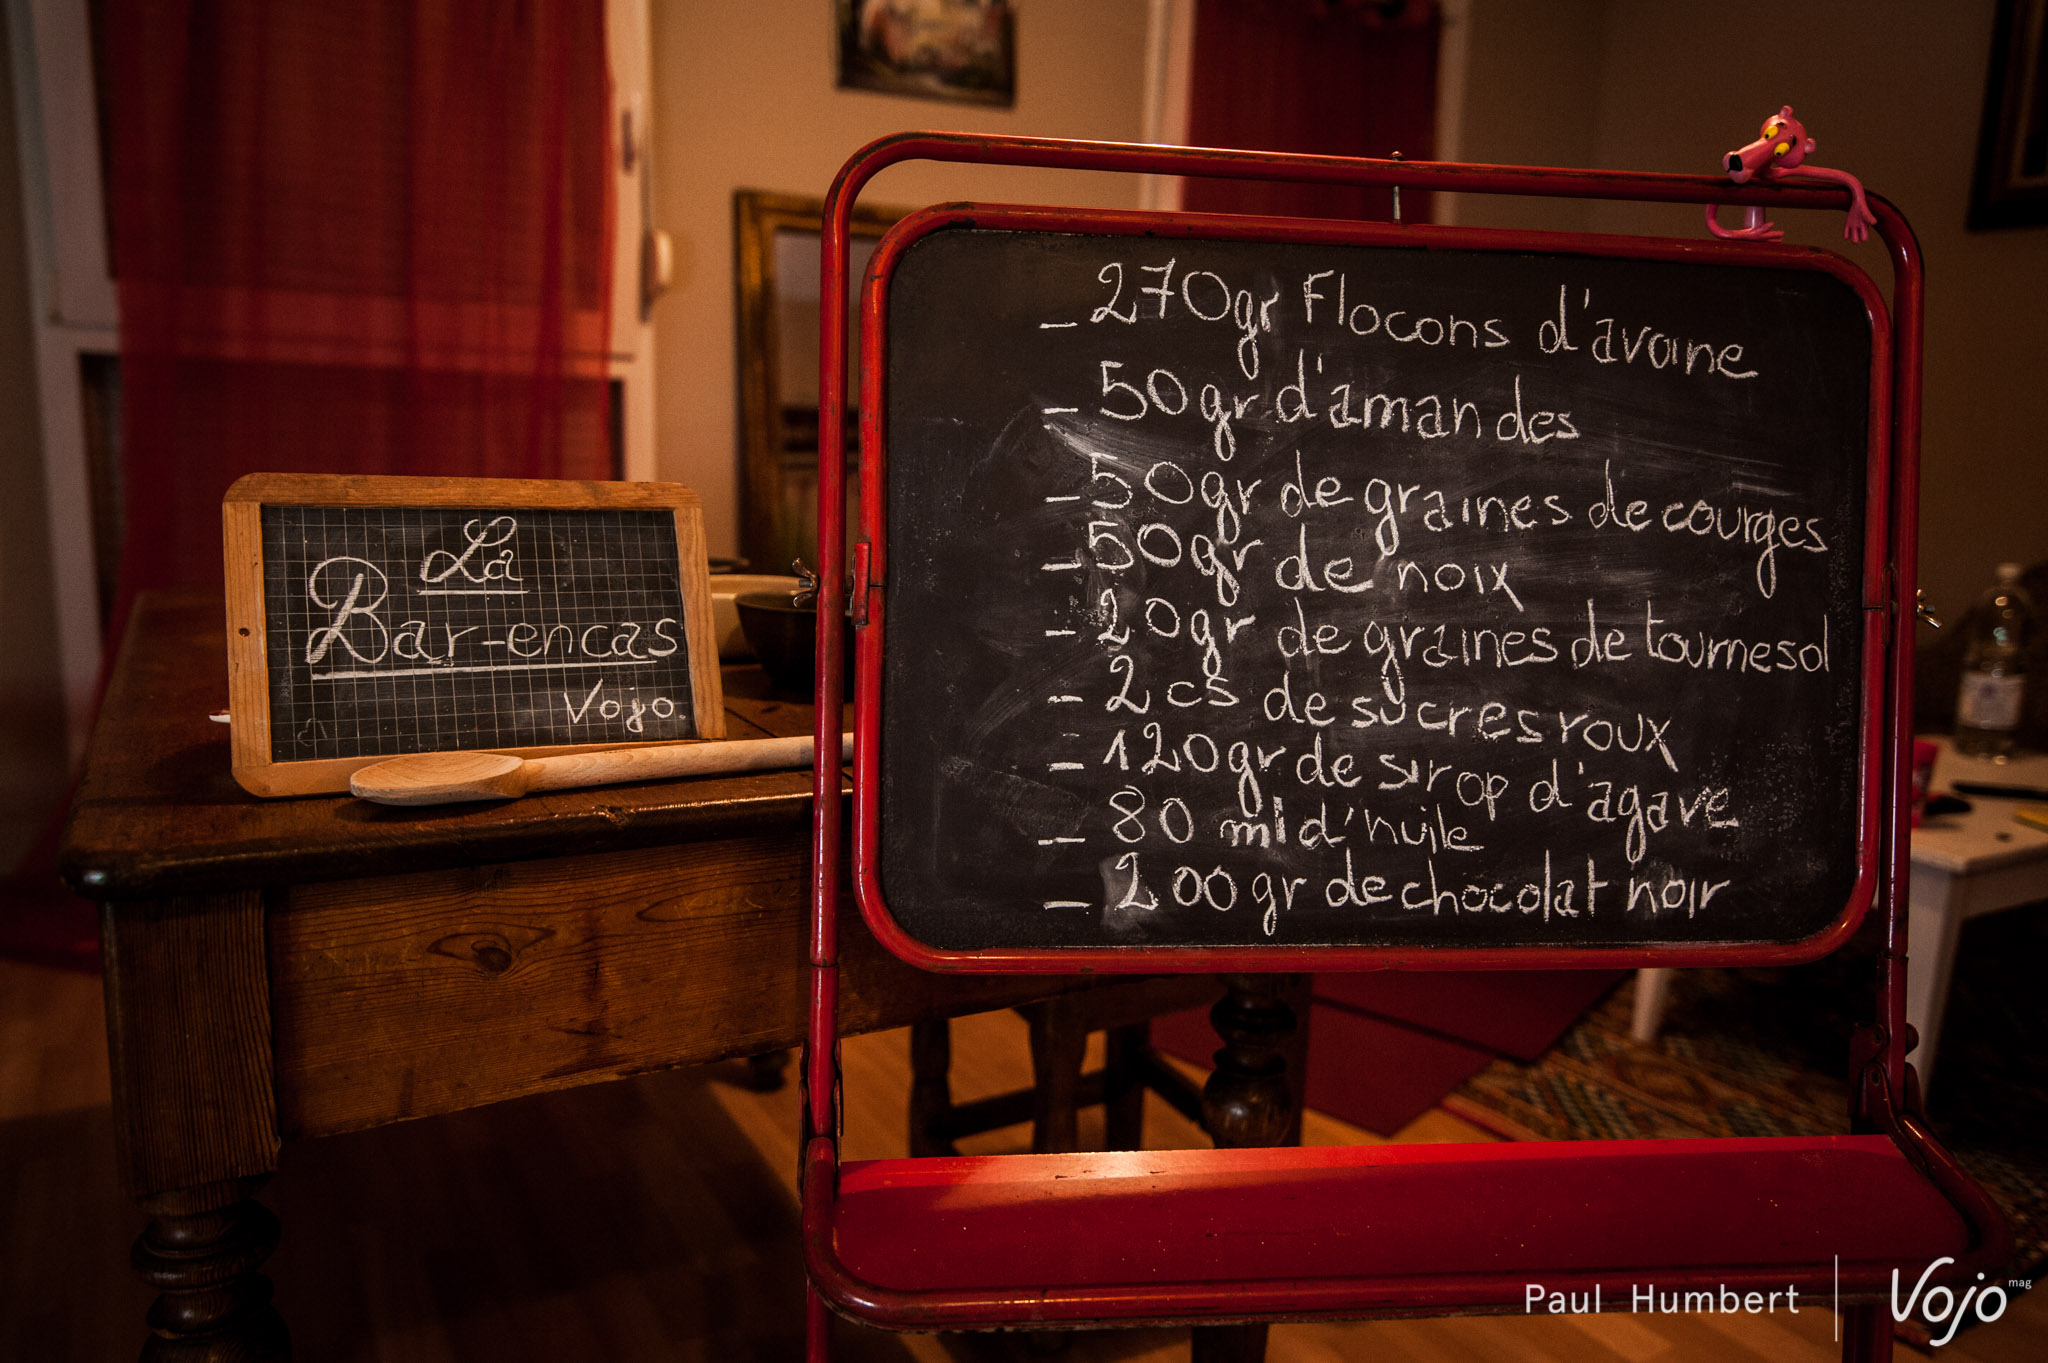 La
Bar-encas
Vojo.
- 270gr Flocons d'avoine
- 50gr d'amandes
- 50gr de graines de courges
- 50gr de noix
- 20gr de graines de tournesol
- 2 cs de sucres roux
- 120gr de sirop d'agave
- 80 ml d'huile
- 200gr de chocolat noir
Paul Humbert
Vojo mag